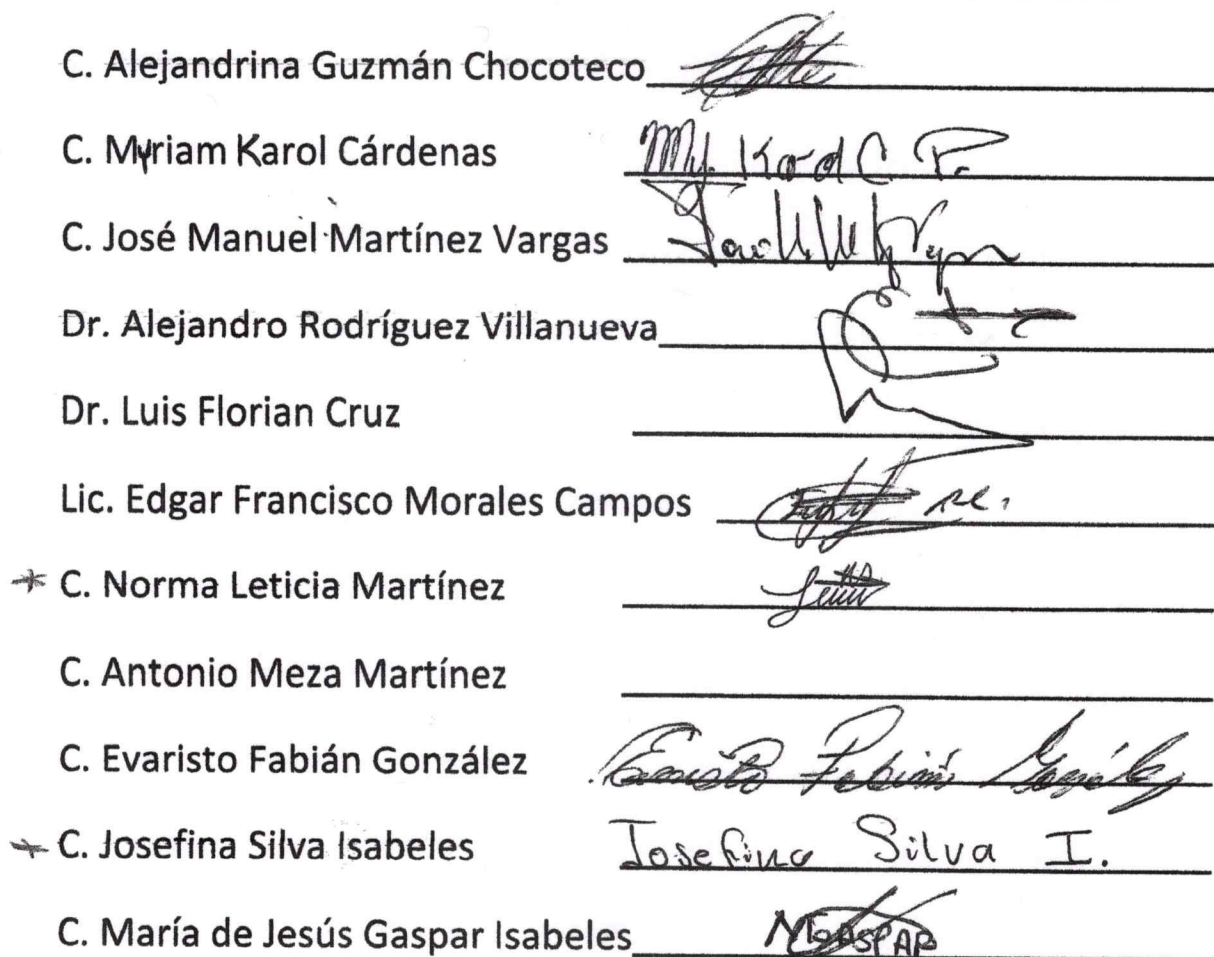 C. Alejandrina Guzmán Chocoteco
C. Myriam Karol Cárdenas My. Karol C. P.
C. José Manuel Martínez Vargas
Dr. Alejandro Rodríguez Villanueva
Dr. Luis Florian Cruz
Lic. Edgar Francisco Morales Campos
* C. Norma Leticia Martínez
C. Antonio Meza Martínez
C. Evaristo Fabián González Evaristo Fabián González
* C. Josefina Silva Isabeles Josefina Silva I.
C. María de Jesús Gaspar Isabeles MGASPAR